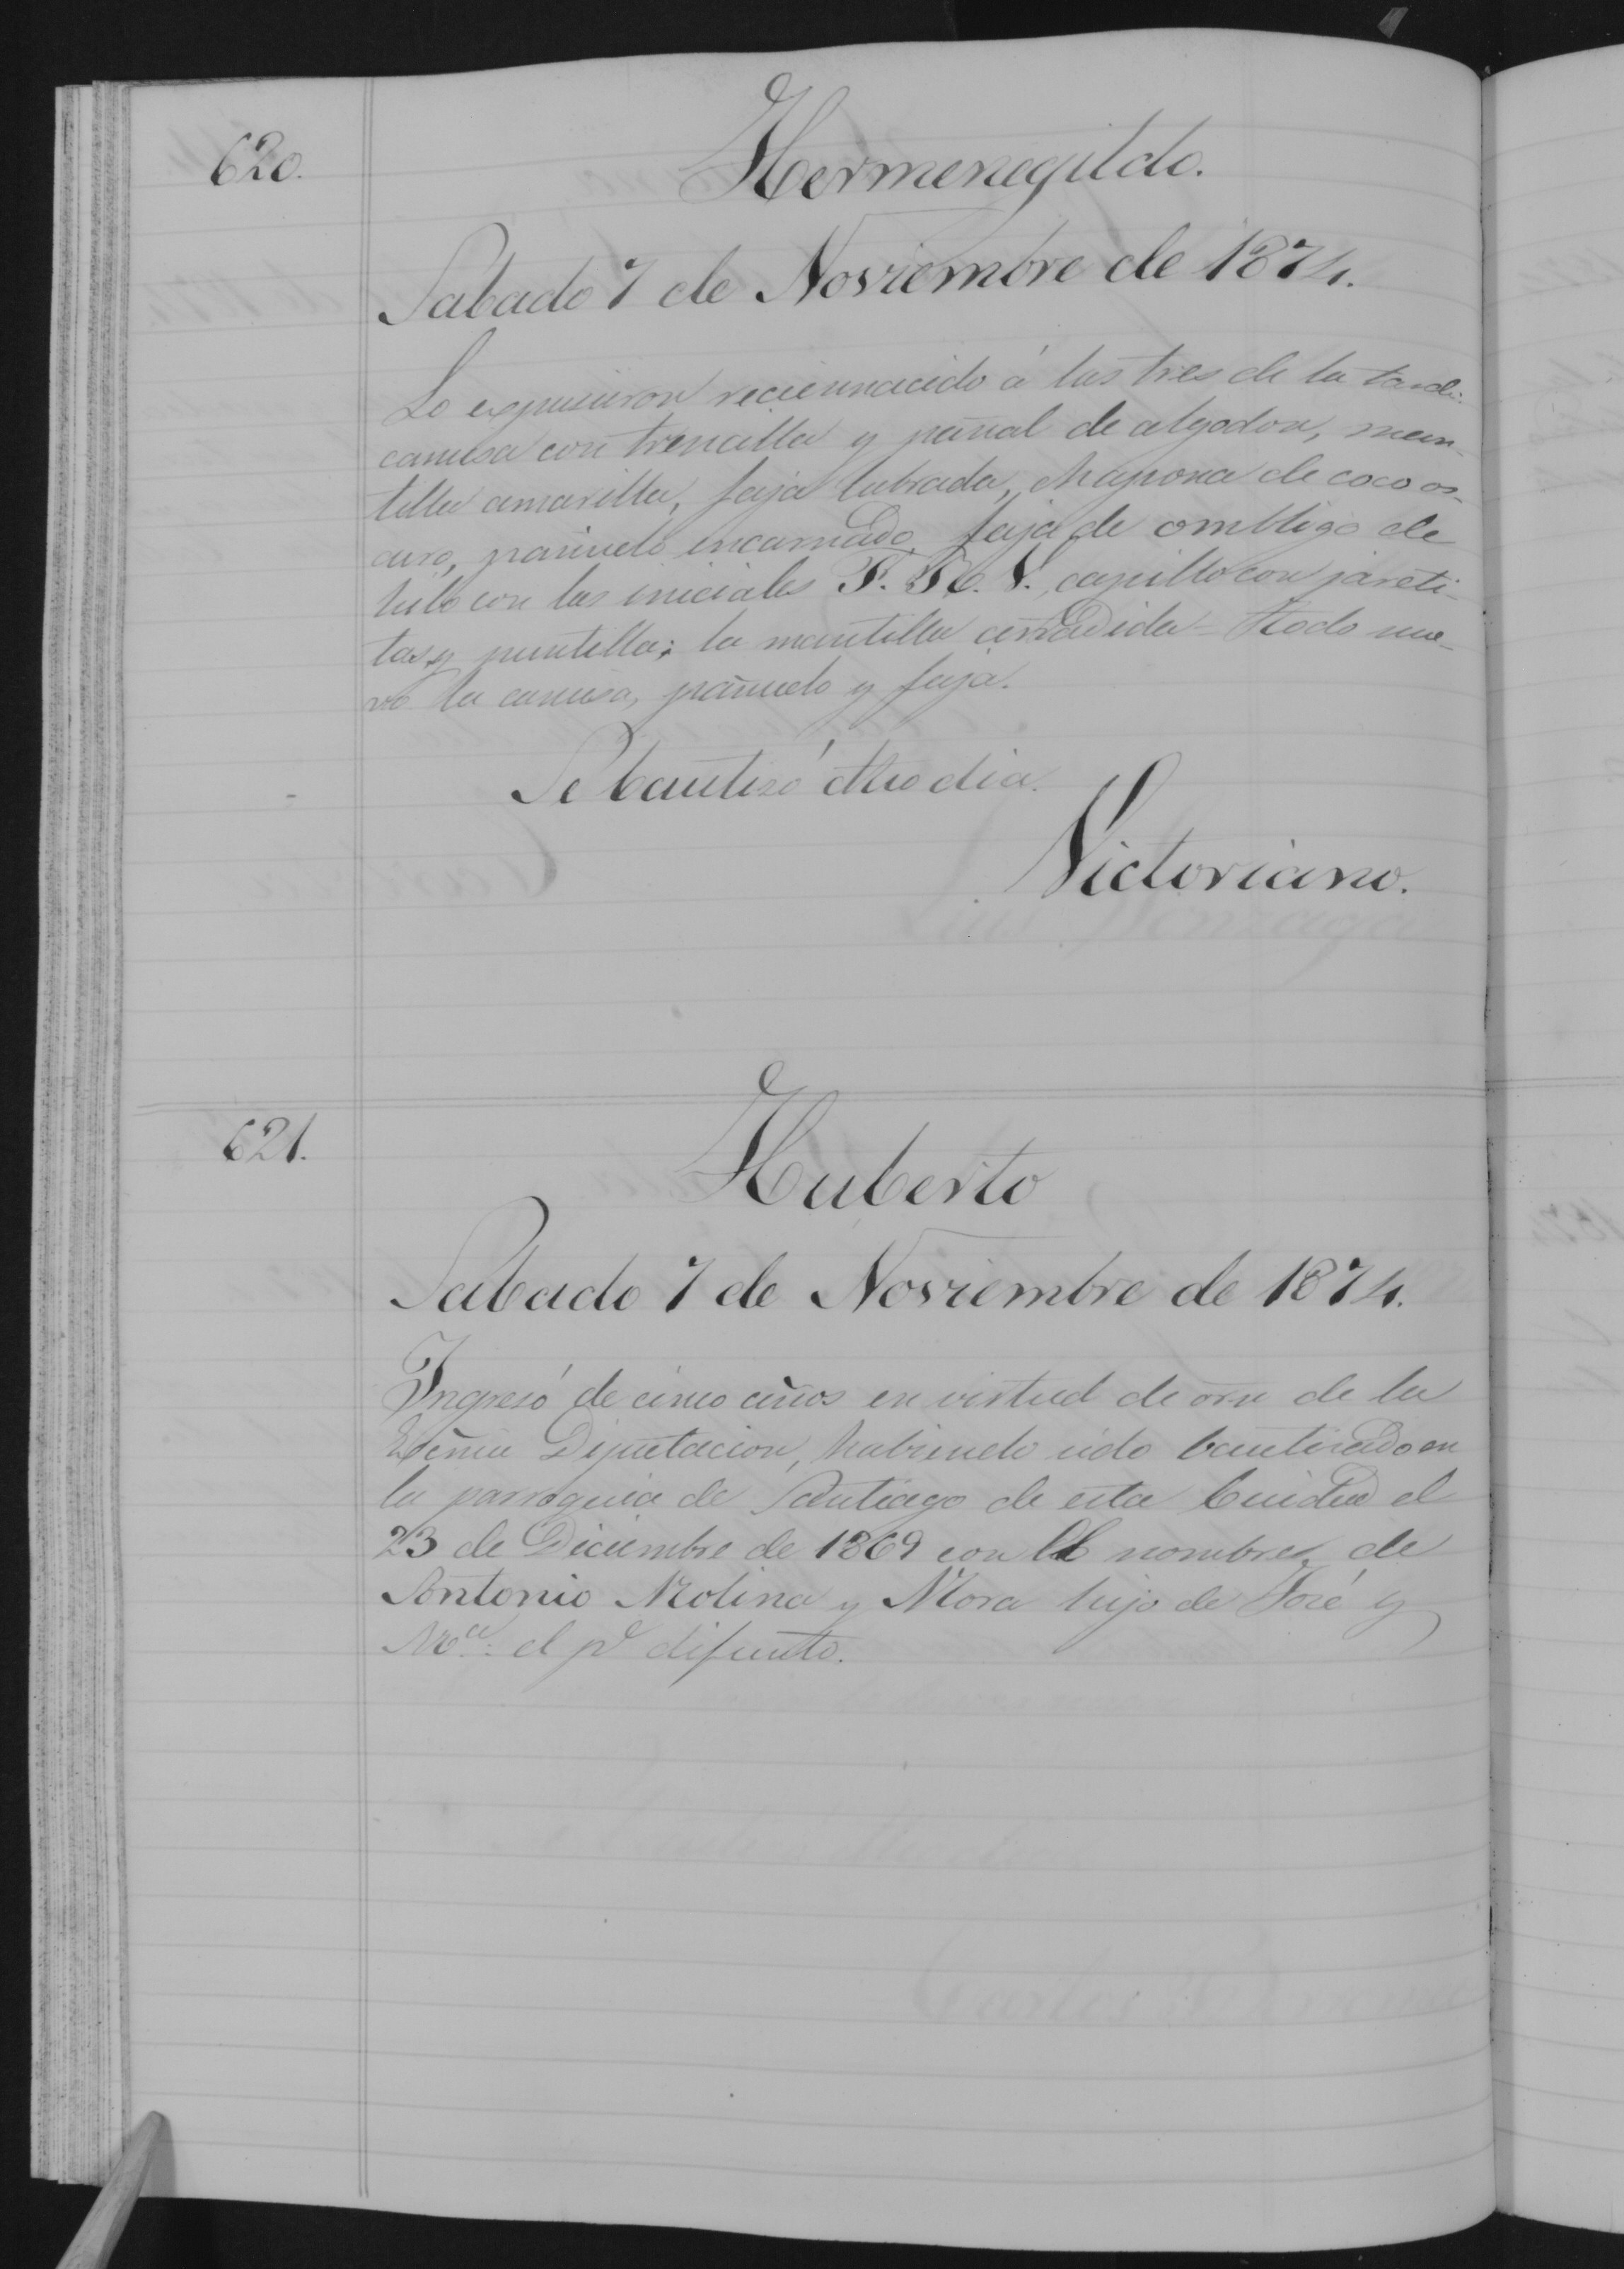 620.
Hermenegildo.
Sabado 7 de Noviembre de 1874.
Lo expusieron reciennacido á las tres de la tarde:
camisa con trencilla y pañal de algodon, man-
tilla amarilla, faja labrada, chapona de coco os-
curo, pañuelo encarnado, faja de ombligo de
hilo con las iniciales F. V., capillo con jareti-
tas y puntilla; la mantilla añadida - Todo nue-
vo la camisa, pañuelo y faja.
Se bautisó dho dia.
Victoriano.
621.
Huberto
Sabado 7 de Noviembre de 1874.
Ingresó de cinco años en virtud de orn de la
Excma Diputacion, habiendo sido bautisado en
la parroquia de Santiago de esta Ciudad el
23 de Diciembre de 1869 con el nombre de
Antonio Molina y Mora hijo de José y
Ma: el pe difunto.